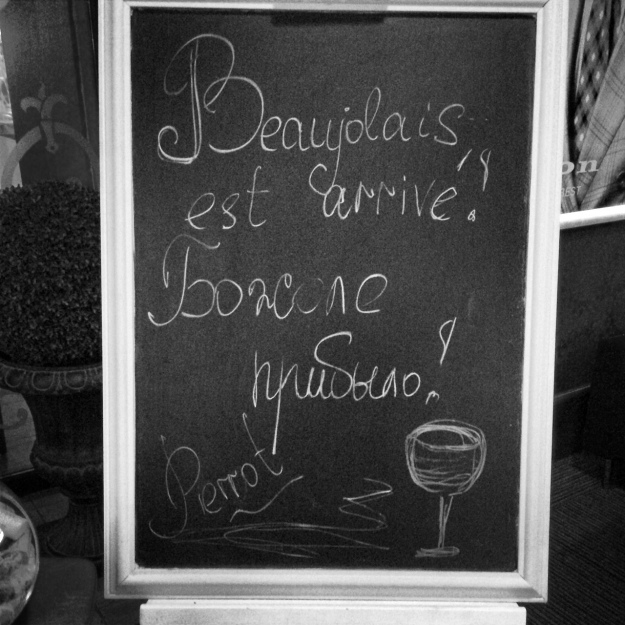 Beaujolais
est arrivé!
Божоле
прибыло!
Perrot
on